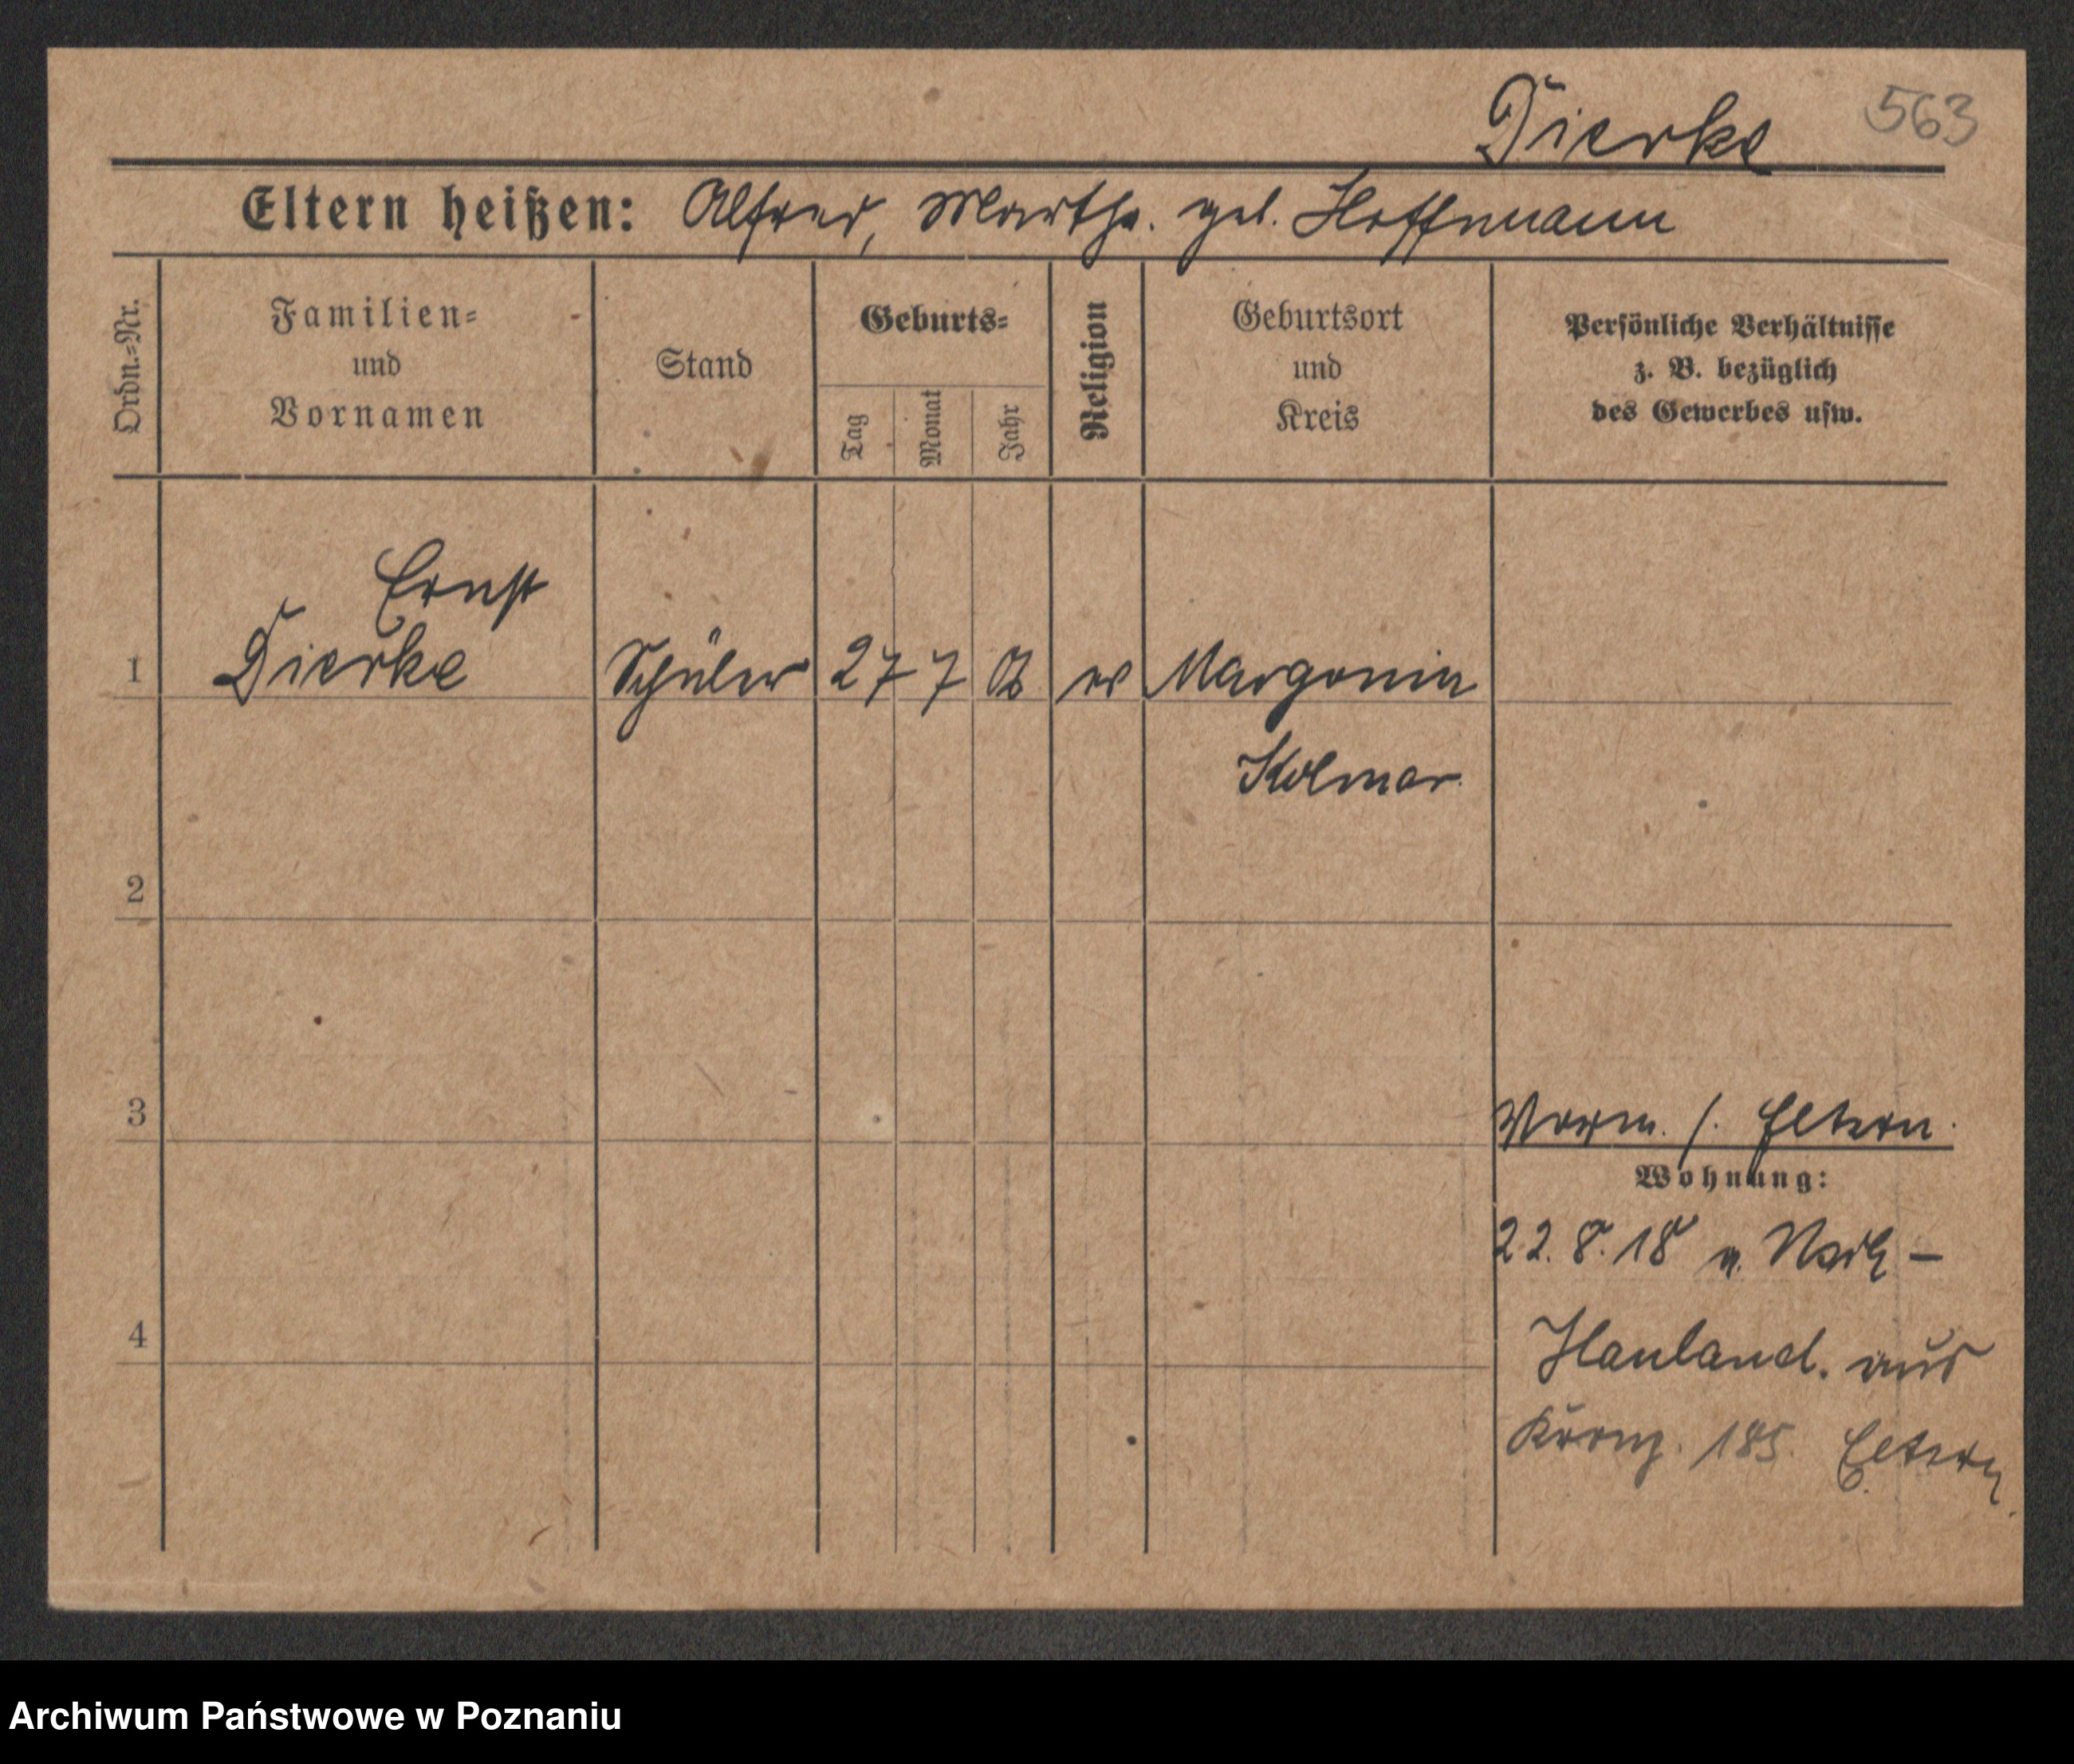 Dierke 563
Eltern heißen: Alfred, Martha. geb. Hoffmann
Ordn.-Nr.
Familien-
und
Vornamen
Stand
Geburts-
Tag
Monat
Jahr
Religion
Geburtsort
und
Kreis
Persönliche Verhältnisse
z. B. bezüglich
des Gewerbes usw.
Ernst
1 Dierke Schüler 27 7 ev Margonin
Kolmar
2
3
Vorm. /. Eltern.
Wohnung:
22. 8. 18 n.
4
Hauland. aus
185. Eltern
Archiwum Państwowe w Poznaniu